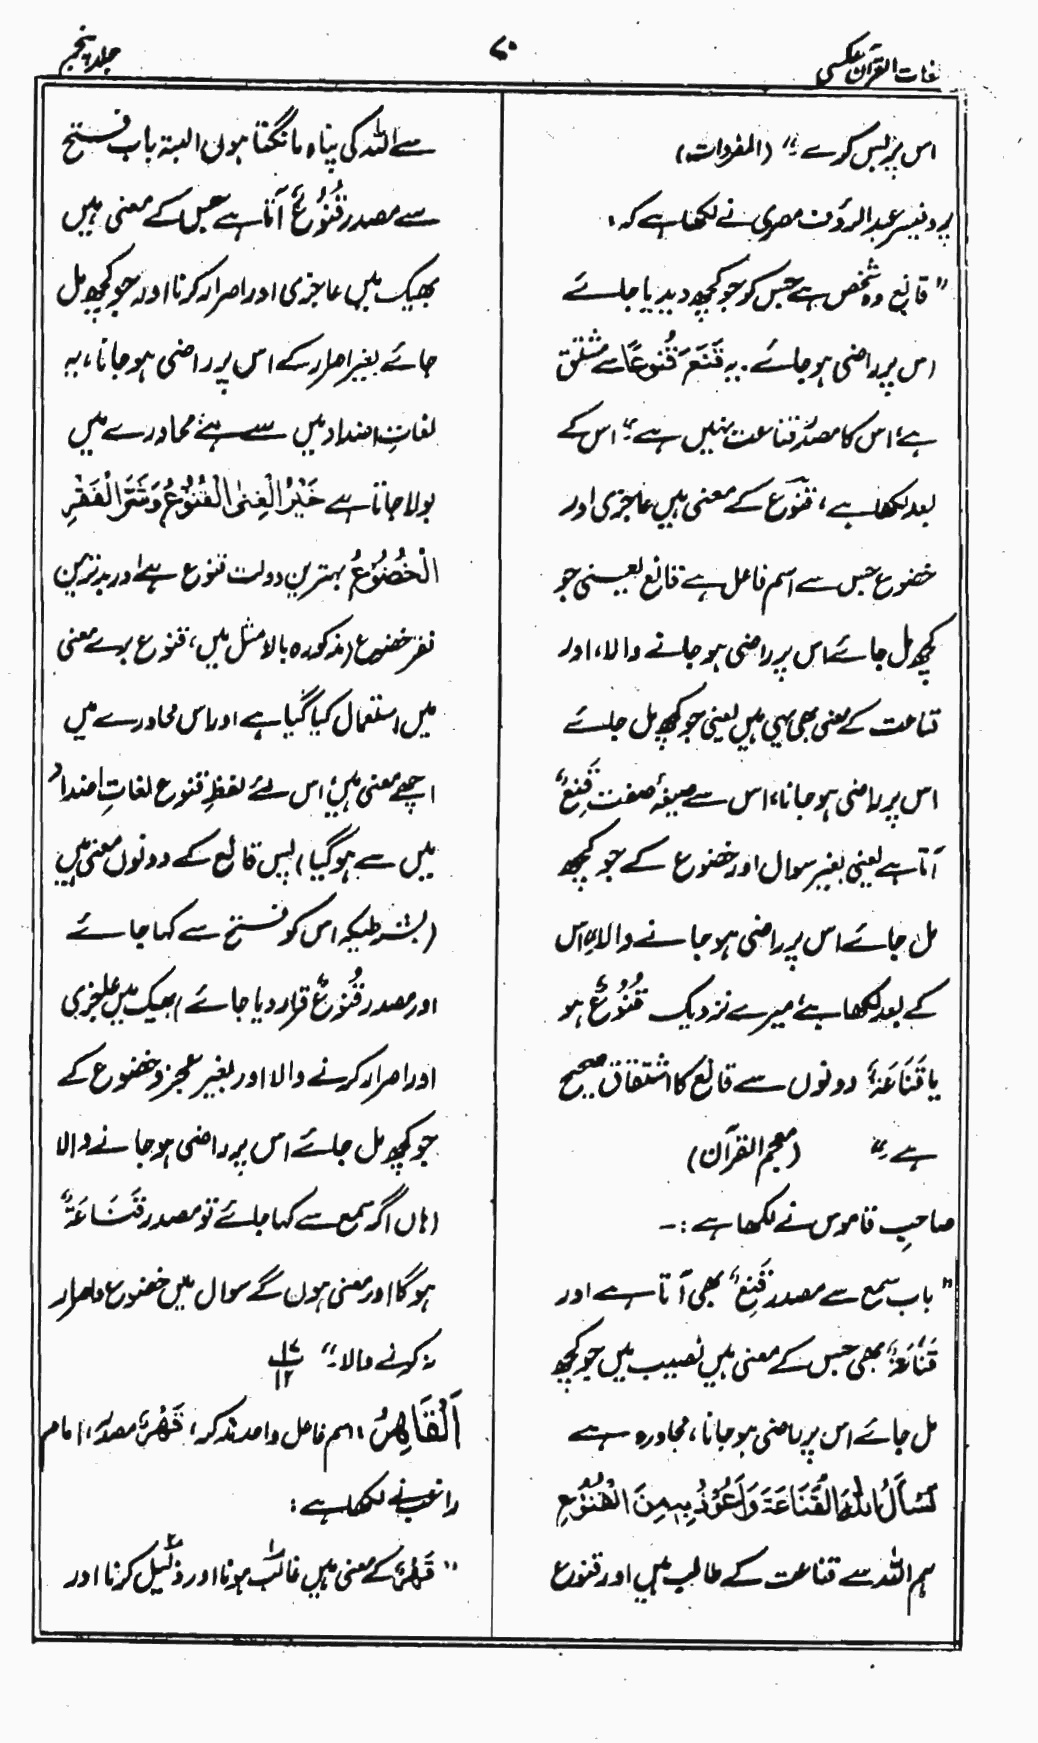 لغات القرآن عکسی
۷۰
جلد پنجم
اس پر بس کرے ۔" (المفردات)
پروفیسر عبدالرؤف مصری نے لکھا ہے کہ :
" قانِع وہ شخص ہے جس کو جو کچھ دیدیا جائے
اس پر راضی ہو جائے ۔ یہ قَنَعَ قُنُوعًا سے مشتق
ہے، اس کا مصدر قناعت نہیں ہے ۔" اس کے
بعد لکھا ہے ، قنوع کے معنی ہیں عاجزی اور
خضوع جس سے اسم فاعل ہے قانع یعنی جو
کچھ مل جائے اس پر راضی ہو جانے والا ، اور
قناعت کے معنی بھی یہی ہیں یعنی جو کچھ مل جائے
اس پر راضی ہو جانا ، اس سے صیغۂ صفت قَنِعٌ
آتا ہے یعنی بغیر سوال اور خضوع کے جو کچھ
مل جائے اس پر راضی ہو جانے والا ۔ اس
کے بعد لکھا ہے، میرے نزدیک قُنُوْعٌ ہو
یا قَنَاعَةٌ دونوں سے قانع کا اشتقاق صحیح
ہے ۔" (معجم القرآن)
صاحبِ قاموس نے لکھا ہے :۔
" باب سمع سے مصدر قَنَعٌ بھی آتا ہے اور
قَنَاعَةٌ بھی جس کے معنی ہیں نصیب میں جو کچھ
مل جائے اس پر راضی ہو جانا ، محاورہ ہے
نَسْأَلُ اللهَ الْقَنَاعَةَ وَنَعُوْذُ بِهٖ مِنَ الْقُنُوْعِ
ہم اللہ سے قناعت کے طالب ہیں اور قنوع
سے اللہ کی پناہ مانگتا ہوں البتہ باب فتح
سے مصدر قُنُوْعٌ آتا ہے جس کے معنی ہیں
بھیک میں عاجزی اور اصرار کرنا اور جو کچھ مل
جائے بغیر اصرار کے اس پر راضی ہو جانا ، یہ
لغاتِ اضداد میں سے ہے، محاورے میں
بولا جاتا ہے خَيْرُ الْغِنٰى الْقُنُوْعُ وَشَرُّ الْفَقْرِ
الْخُضُوْعُ بہترین دولت قنوع ہے اور بدترین
فقر خضوع (مذکورہ بالا مثل میں، قنوع برے معنی
میں استعمال کیا گیا ہے اور اس محاورے میں
اچھے معنی ہیں، اس لئے لفظِ قنوع لغاتِ اضداد
میں سے ہو گیا) پس قانع کے دونوں معنی ہیں
(بشرطیکہ اس کو فتح سے کہا جائے
اور مصدر قُنُوْعٌ قرار دیا جائے) بھیک میں عاجزی
اور اصرار کرنے والا اور بغیر عجز و خضوع کے
جو کچھ مل جائے اس پر راضی ہو جانے والا
(ہاں اگر سمع سے کہا جائے تو مصدر قَنَاعَةٌ
ہوگا اور معنی ہوں گے سوال میں خضوع و اصرار
نہ کرنے والا ۔" ۱۷/۱۲
اَلْقَاهِرُ ، اسم فاعل واحد مذکر ، قَهْرٌ مصدر، امام
راغب نے لکھا ہے :
" قَهْرٌ کے معنی ہیں غالب ہونا اور ذلیل کرنا اور